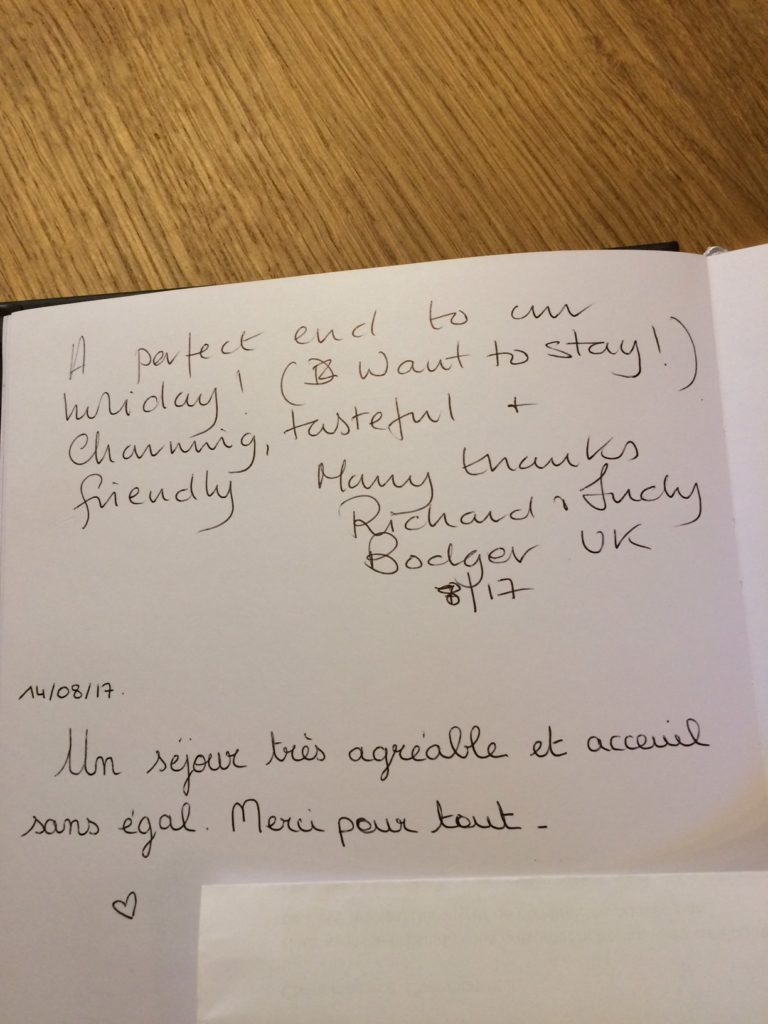 A perfect end to our
holiday! (Want to stay!)
Charming, tasteful +
friendly Many thanks
Richard & Judy
Bodger UK
8/17
14/08/17.
Un séjour très agréable et acceuil
sans égal. Merci pour tout -